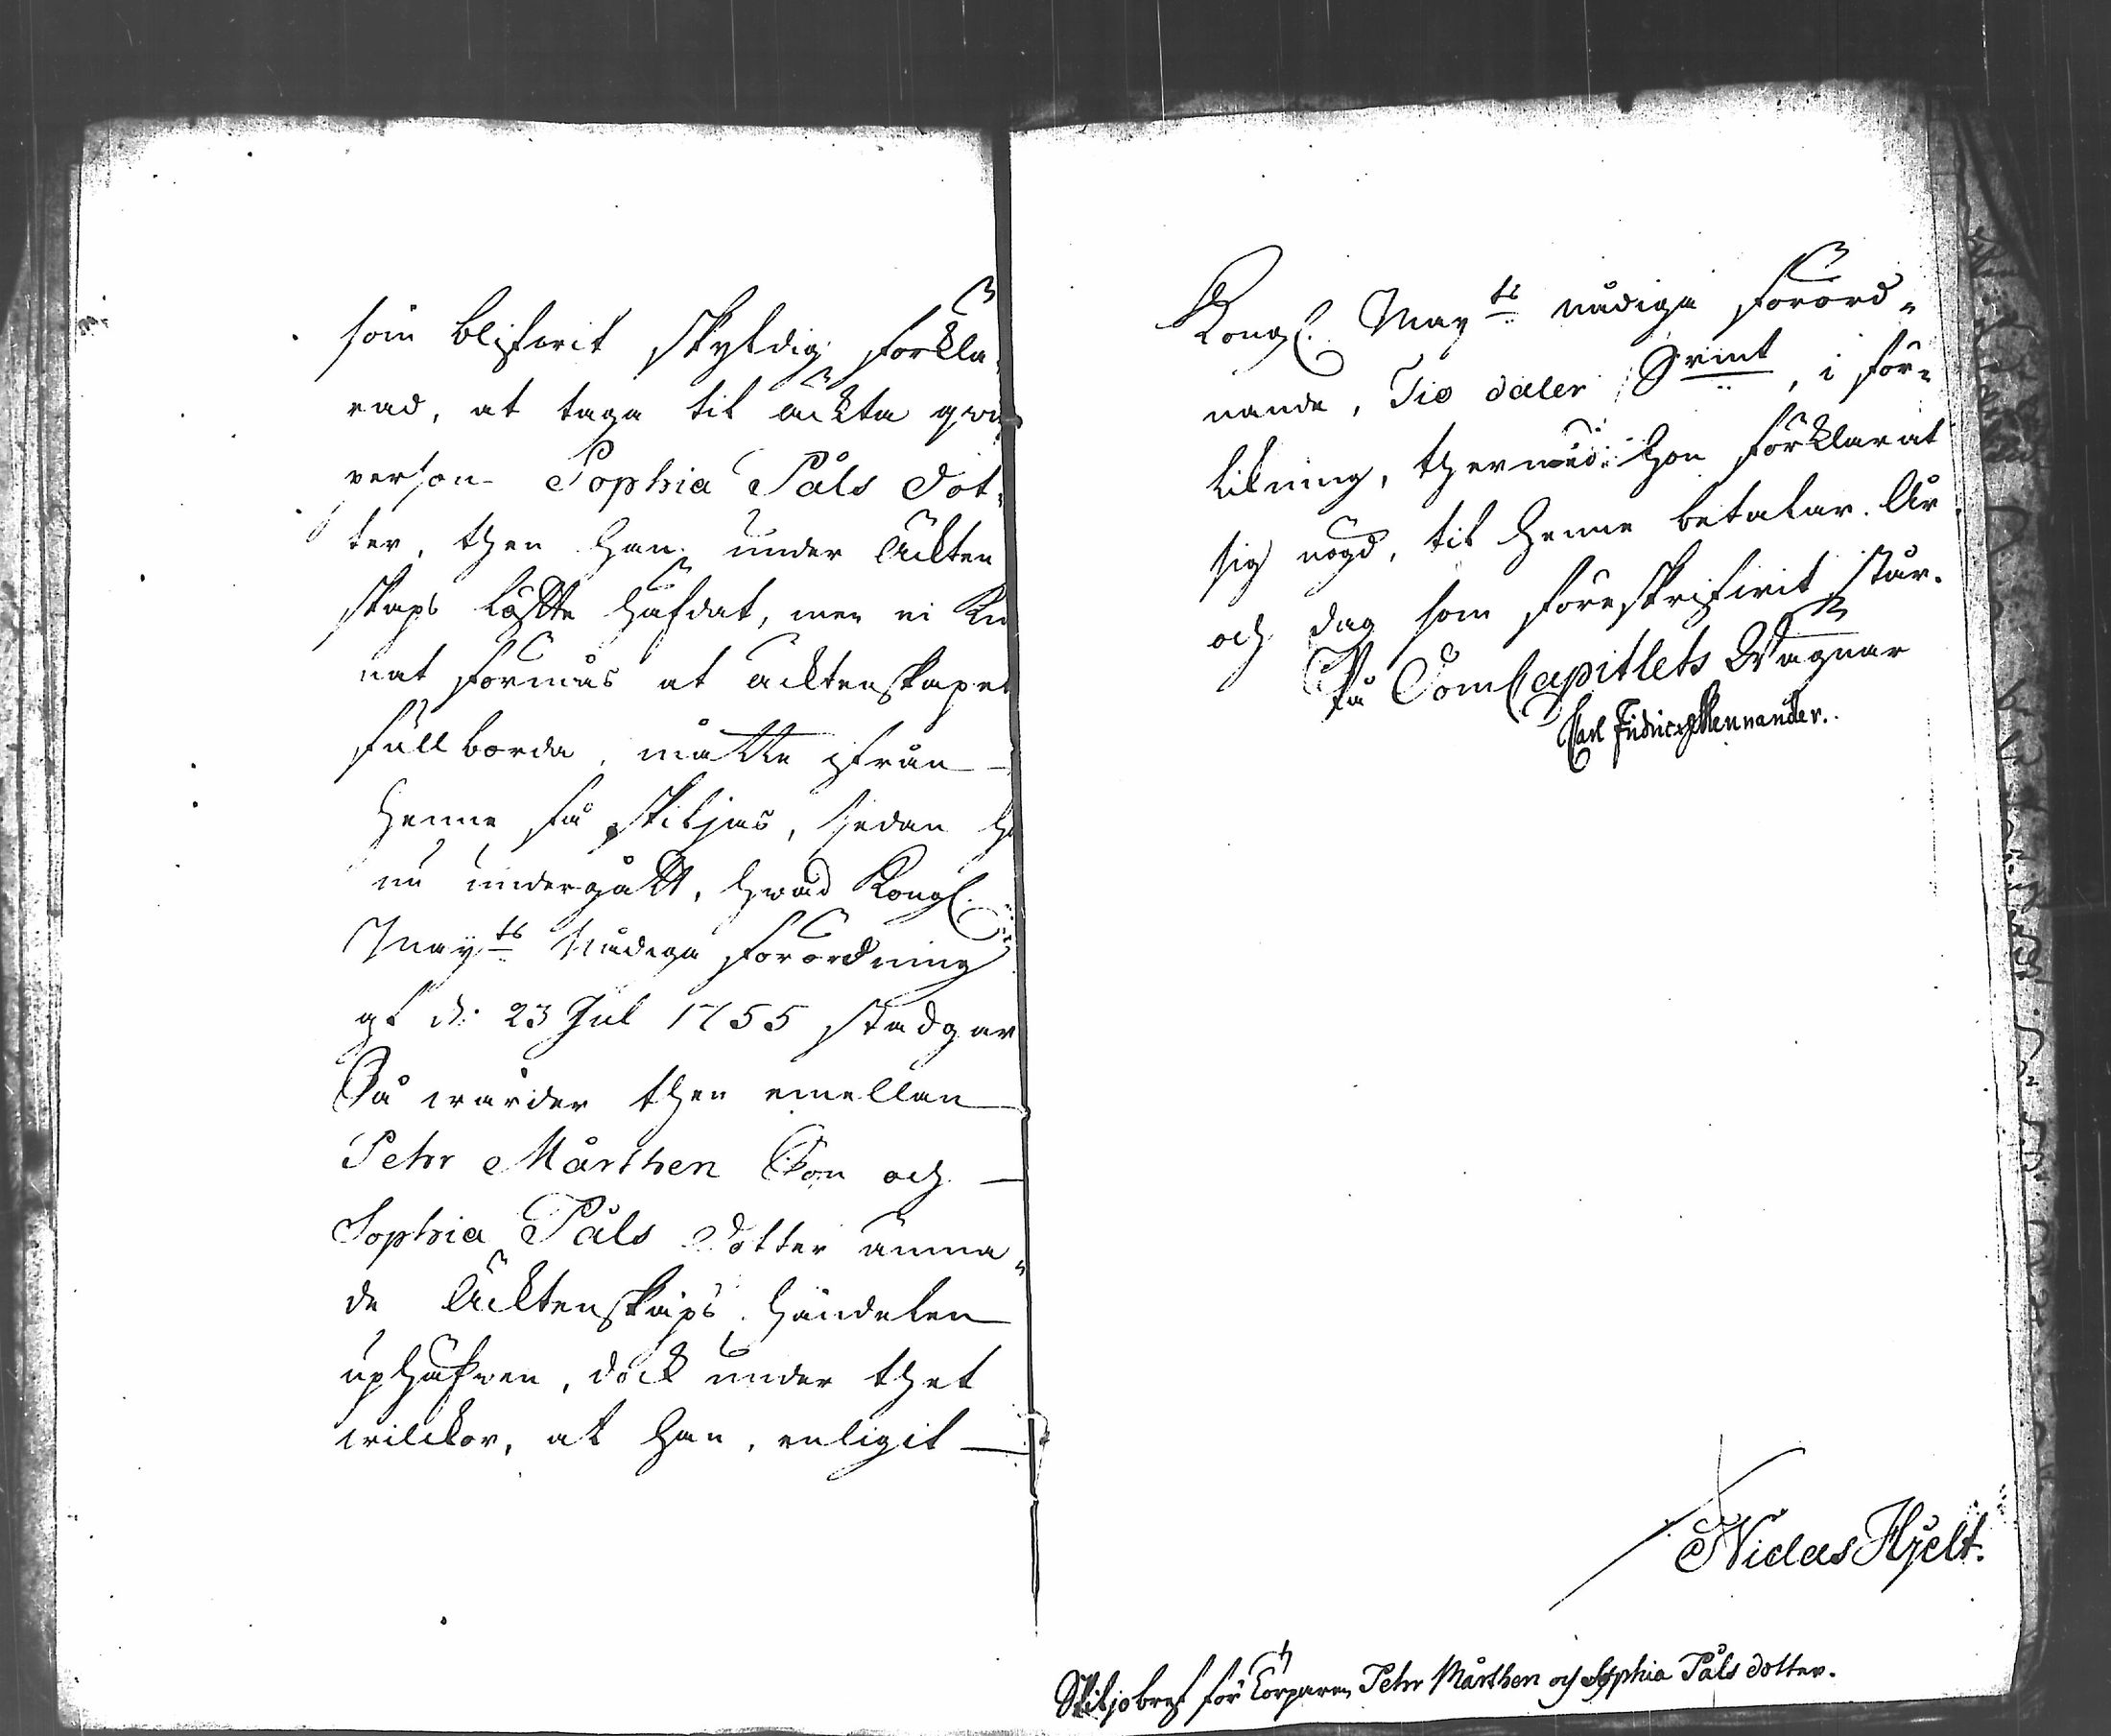 som blifwit skyldig förkla-
rad, at taga til äckta qwin
person Sophia Påls dot-
ter, then han under Äckten
skaps löffte häfdat, men ei kun
nat förmås at ächtenskapet
fullborda, måtte ifrån
henne få skiljas, sedan h
nu undergått, hwad Kongl.
Mayts Nådiga förordning
af d: 23 Jul 1755 stadgar
Så warder then emellan
Pehr Mårthen Son och
Sophia Påls dotter ämna-
de Äcktenskaps handelen
uphäfwen, dock under thet
wilckor, at han, enligit
Kongl. Mayts nådiga förord-
nande, Tio daler Smt, i för-
likning, thermed hon förklarat
sig nögd, til henne betalar. År
och dag som föreskrifwit står.
På DomCapitlets Wägnar
Carl Fridric Mennander.
Niclas Hjelt.
Skiljobref för Torparen Pehr Mårthen och Sophia Påls dotter.